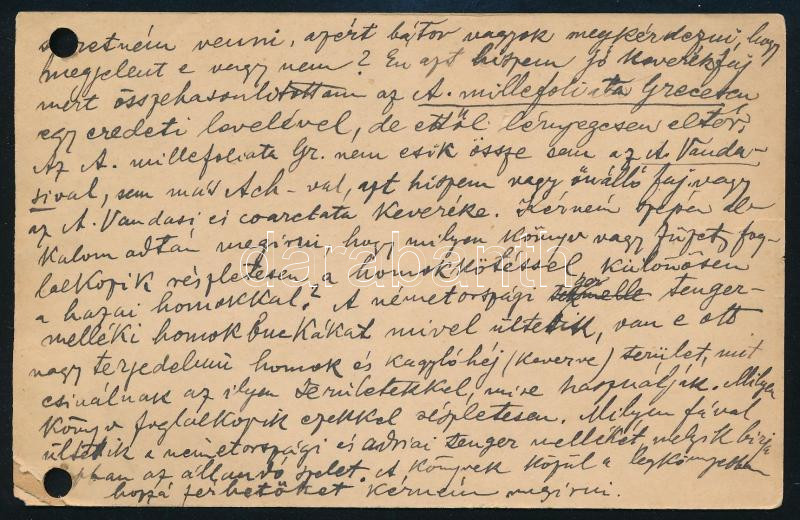 szeretném venni, azért bátor vagyok megkérdezni, hogy
megjelent e vagy nem? Én azt hiszem jó keverékfaj
mert összehasonlitottam az A. millefoliata Grecescu
egy eredeti levelével, de ettől lényegesen eltér.
Az A. millefoliata Gr. nem esik össze sem az A. Vanda-
sival, sem más Ach-val, azt hiszem vagy önálló faj vagy
az A. Vandasi és coarctata keveréke. Kérném szépen al-
kalom adtán megirni, hogy milyen könyv vagy füzet fog-
lalkozik részletesen a homokkötéssel, különösen
a hazai homokkal? A németországi tenger-
melléki homokbuckákat mivel ültetik, van e ott
nagy terjedelmü homok és kagylóhéj (keverve) terület, mit
csinálnak az ilyen területekkel, mire használják. Milyen
könyv foglalkozik ezekkel részletesen. Milyen fával
ültetik a németországi és adriai tenger mellékét, melyik birja
jobban az állandó szelet. A könyvek közül a legkönnyebben
hozzá férhetőket kérném megirni.
darabanth